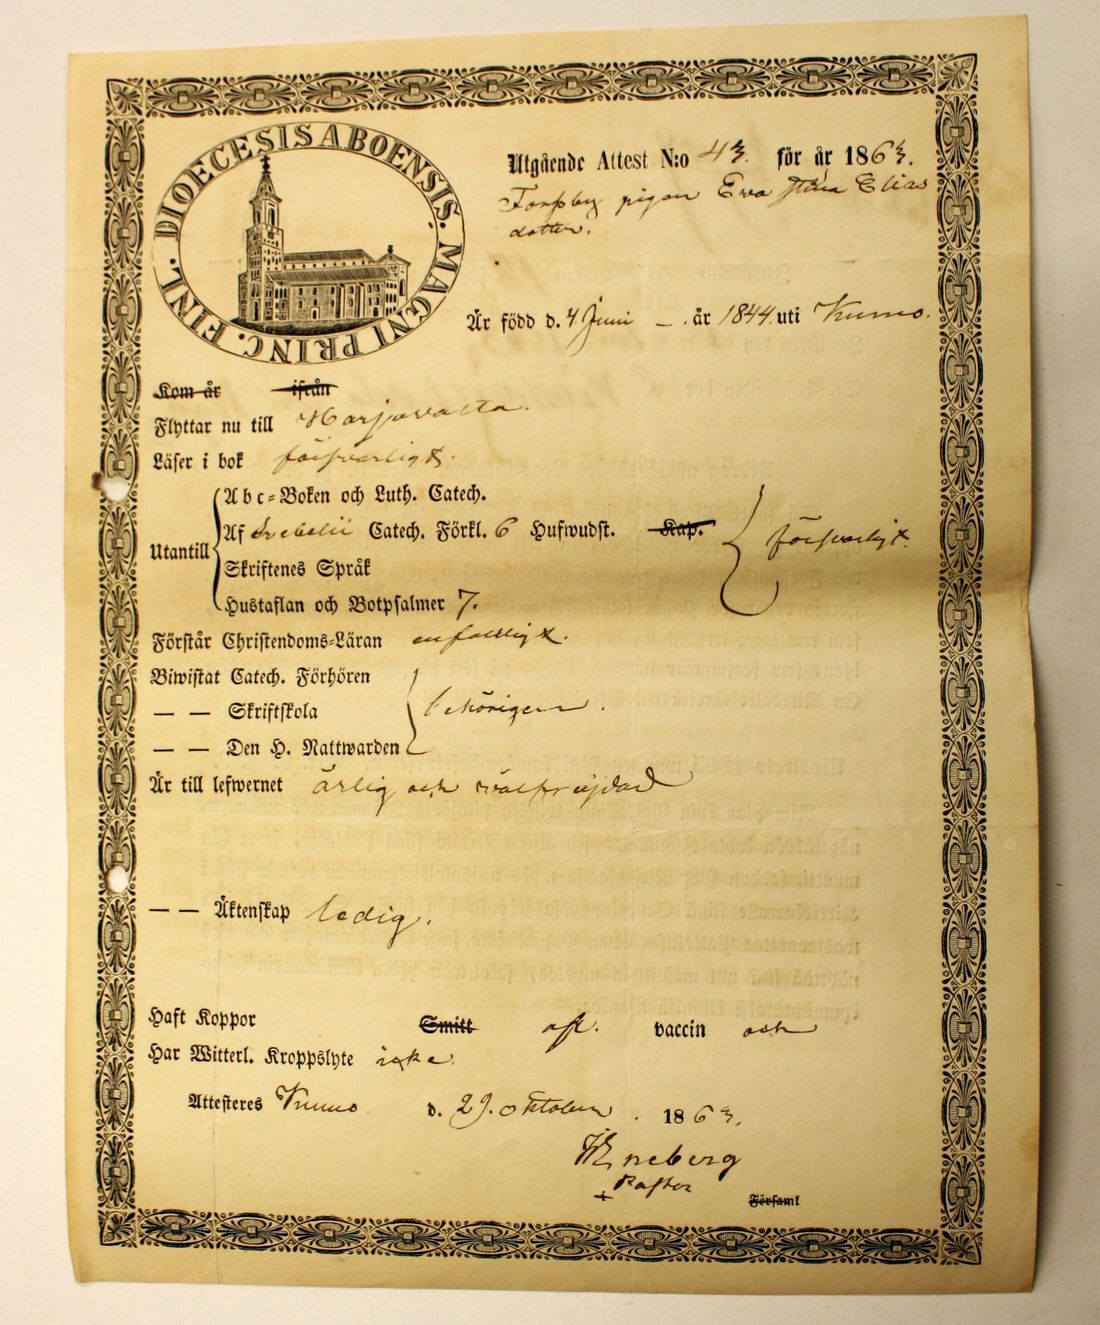 DIOECESIS ABOENSIS. MAGNI PRINC. FINL.
Utgående Attest N:o 43. för år 1863.
Forssby pigan Eva Stina Elias
dotter.
Är född d. 4 Juni – . år 1844 uti Kumo.
Kom år ifrån
Flyttar nu till Harjavalta.
Läser i bok försvarligt.
Utantill
Abc=Boken och Luth. Catech.
Af Svebelii Catech. Förkl. 6 Hufwudst. Kap. försvarligt.
Skriftenes Språk
Hustaflan och Botpsalmer 7.
Förstår Christendoms=Läran enfaldigt.
Biwistat Catech. Förhören
— — Skriftskola behörigen.
— — Den H. Nattwarden
Är till lefwernet ärlig och välfrejdad
— — Äktenskap ledig.
Haft Koppor Smitt af. vaccin och
Har Witterl. Kroppslyte icke.
Attesteres Kumo d. 29. oktober . 1863.
Eneberg
Pastor
Församl